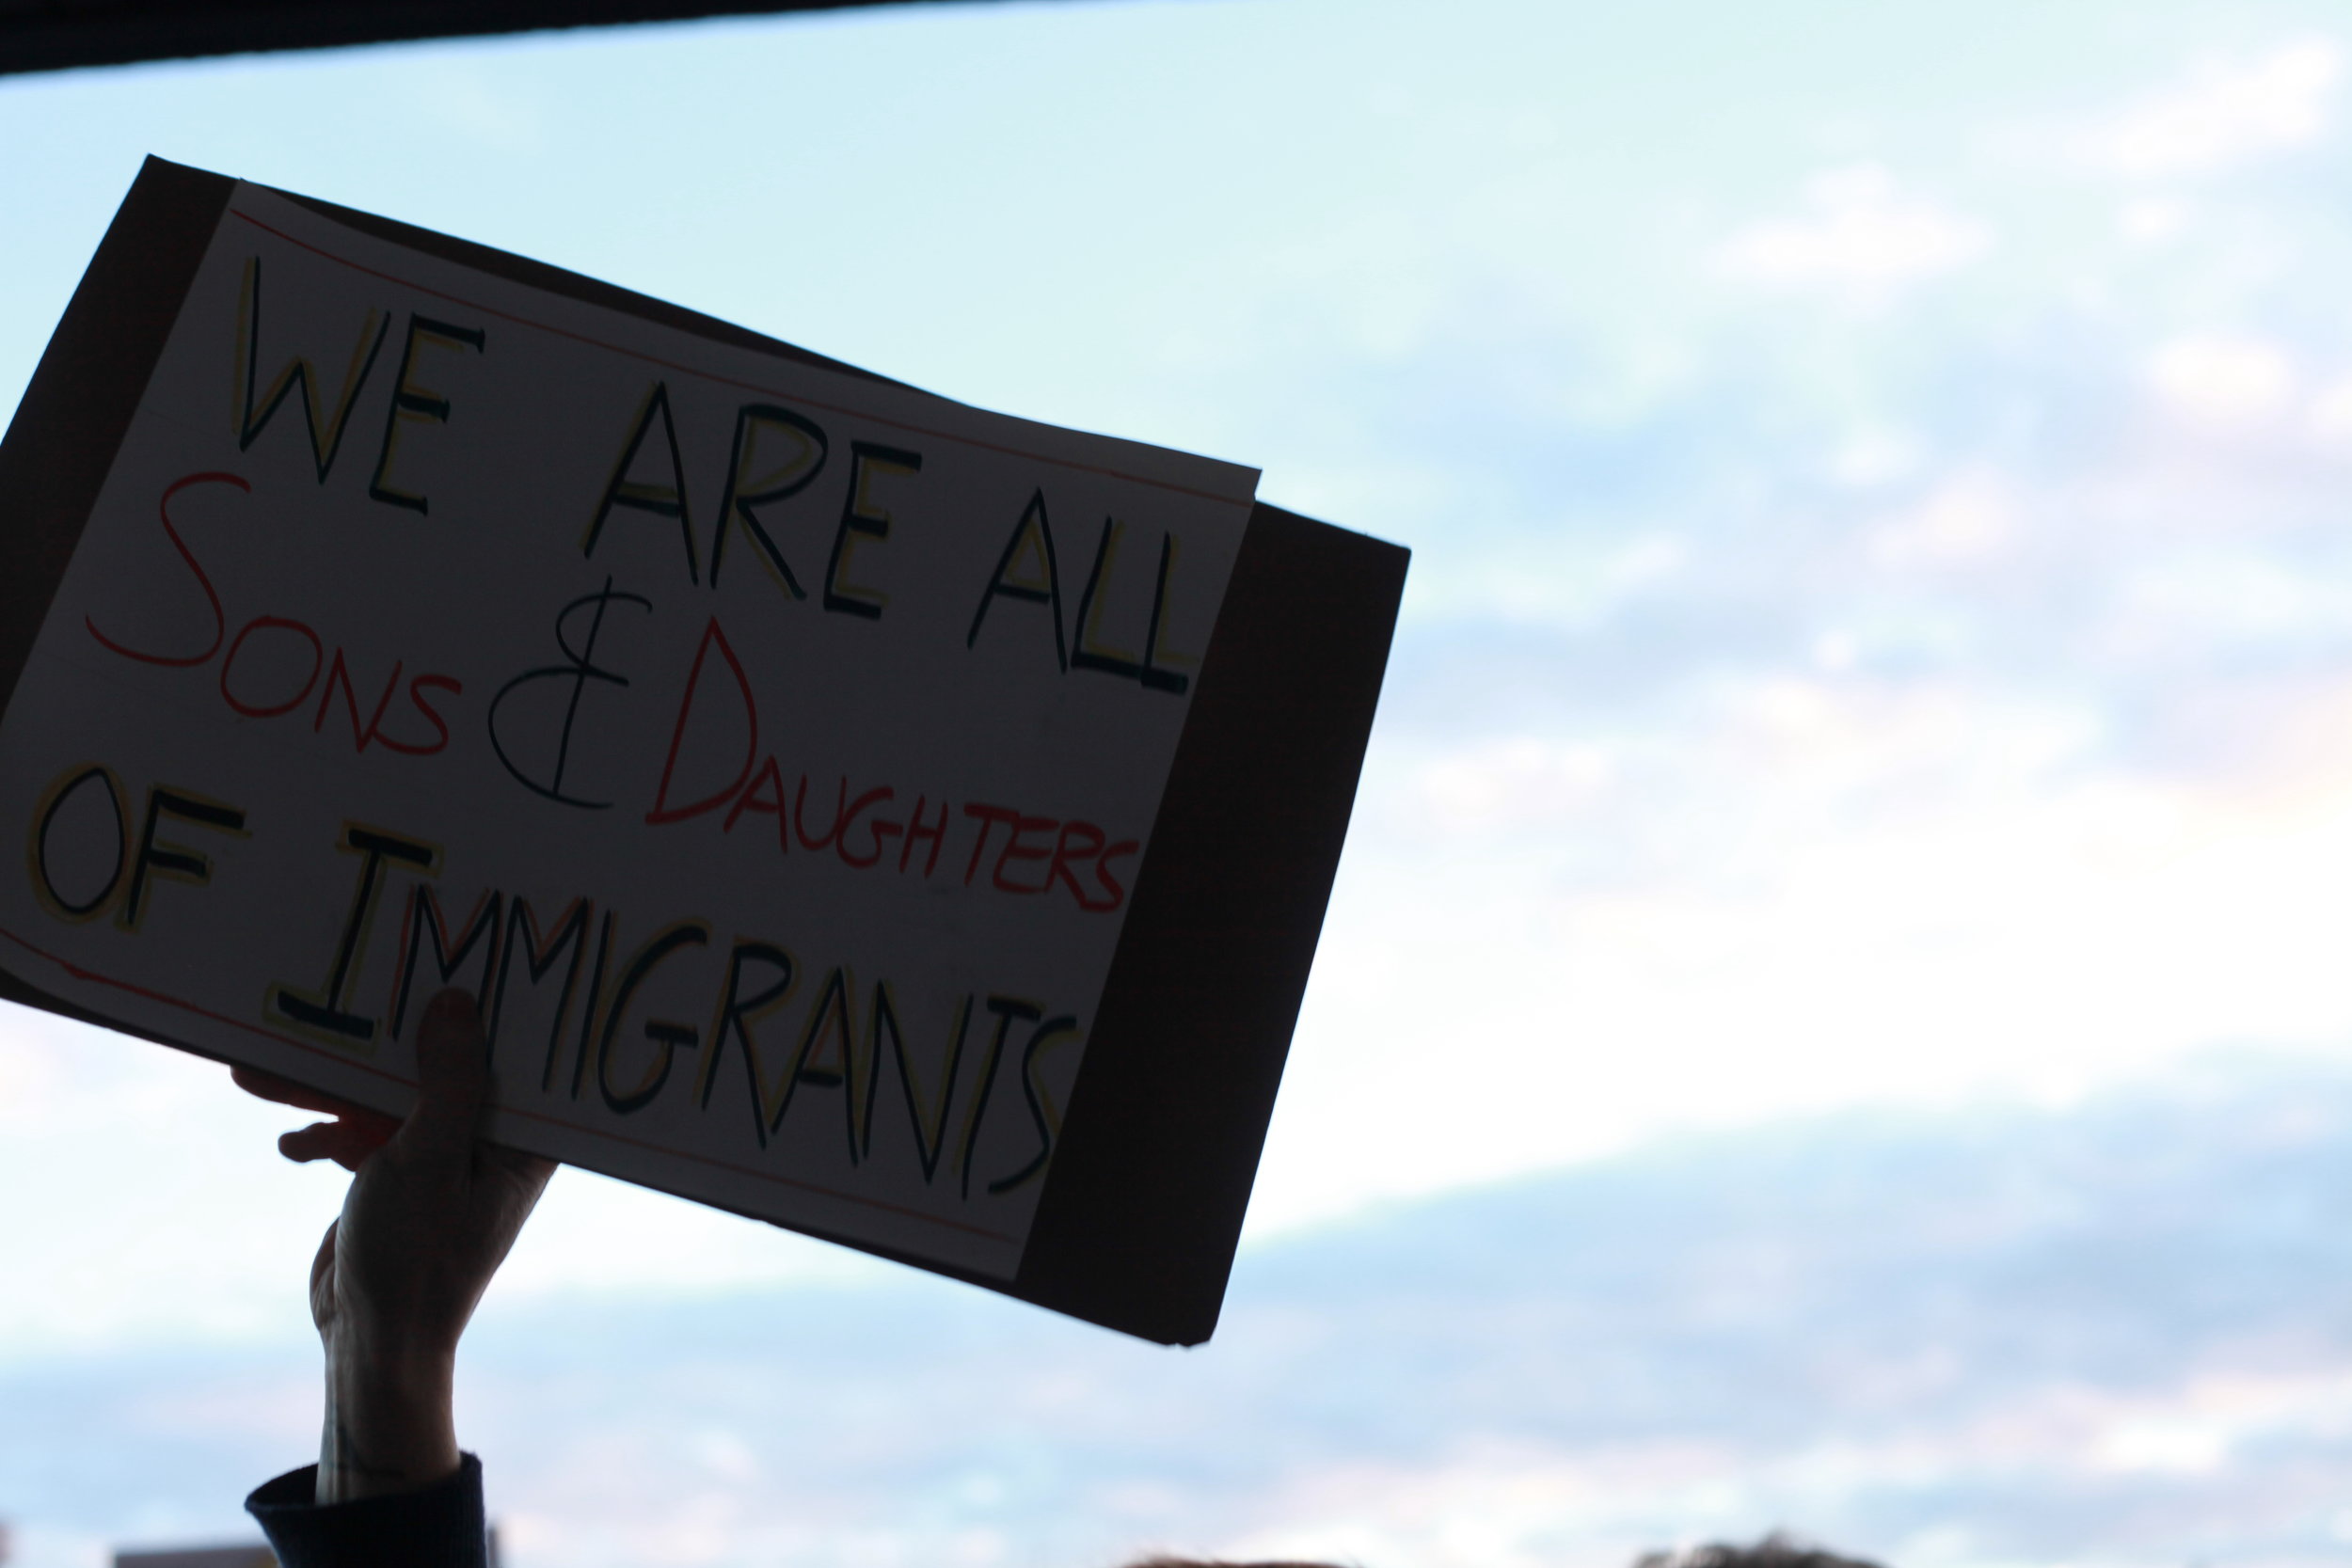 WE ARE ALL
SONS & DAUGHTERS
OF IMMIGRANTS